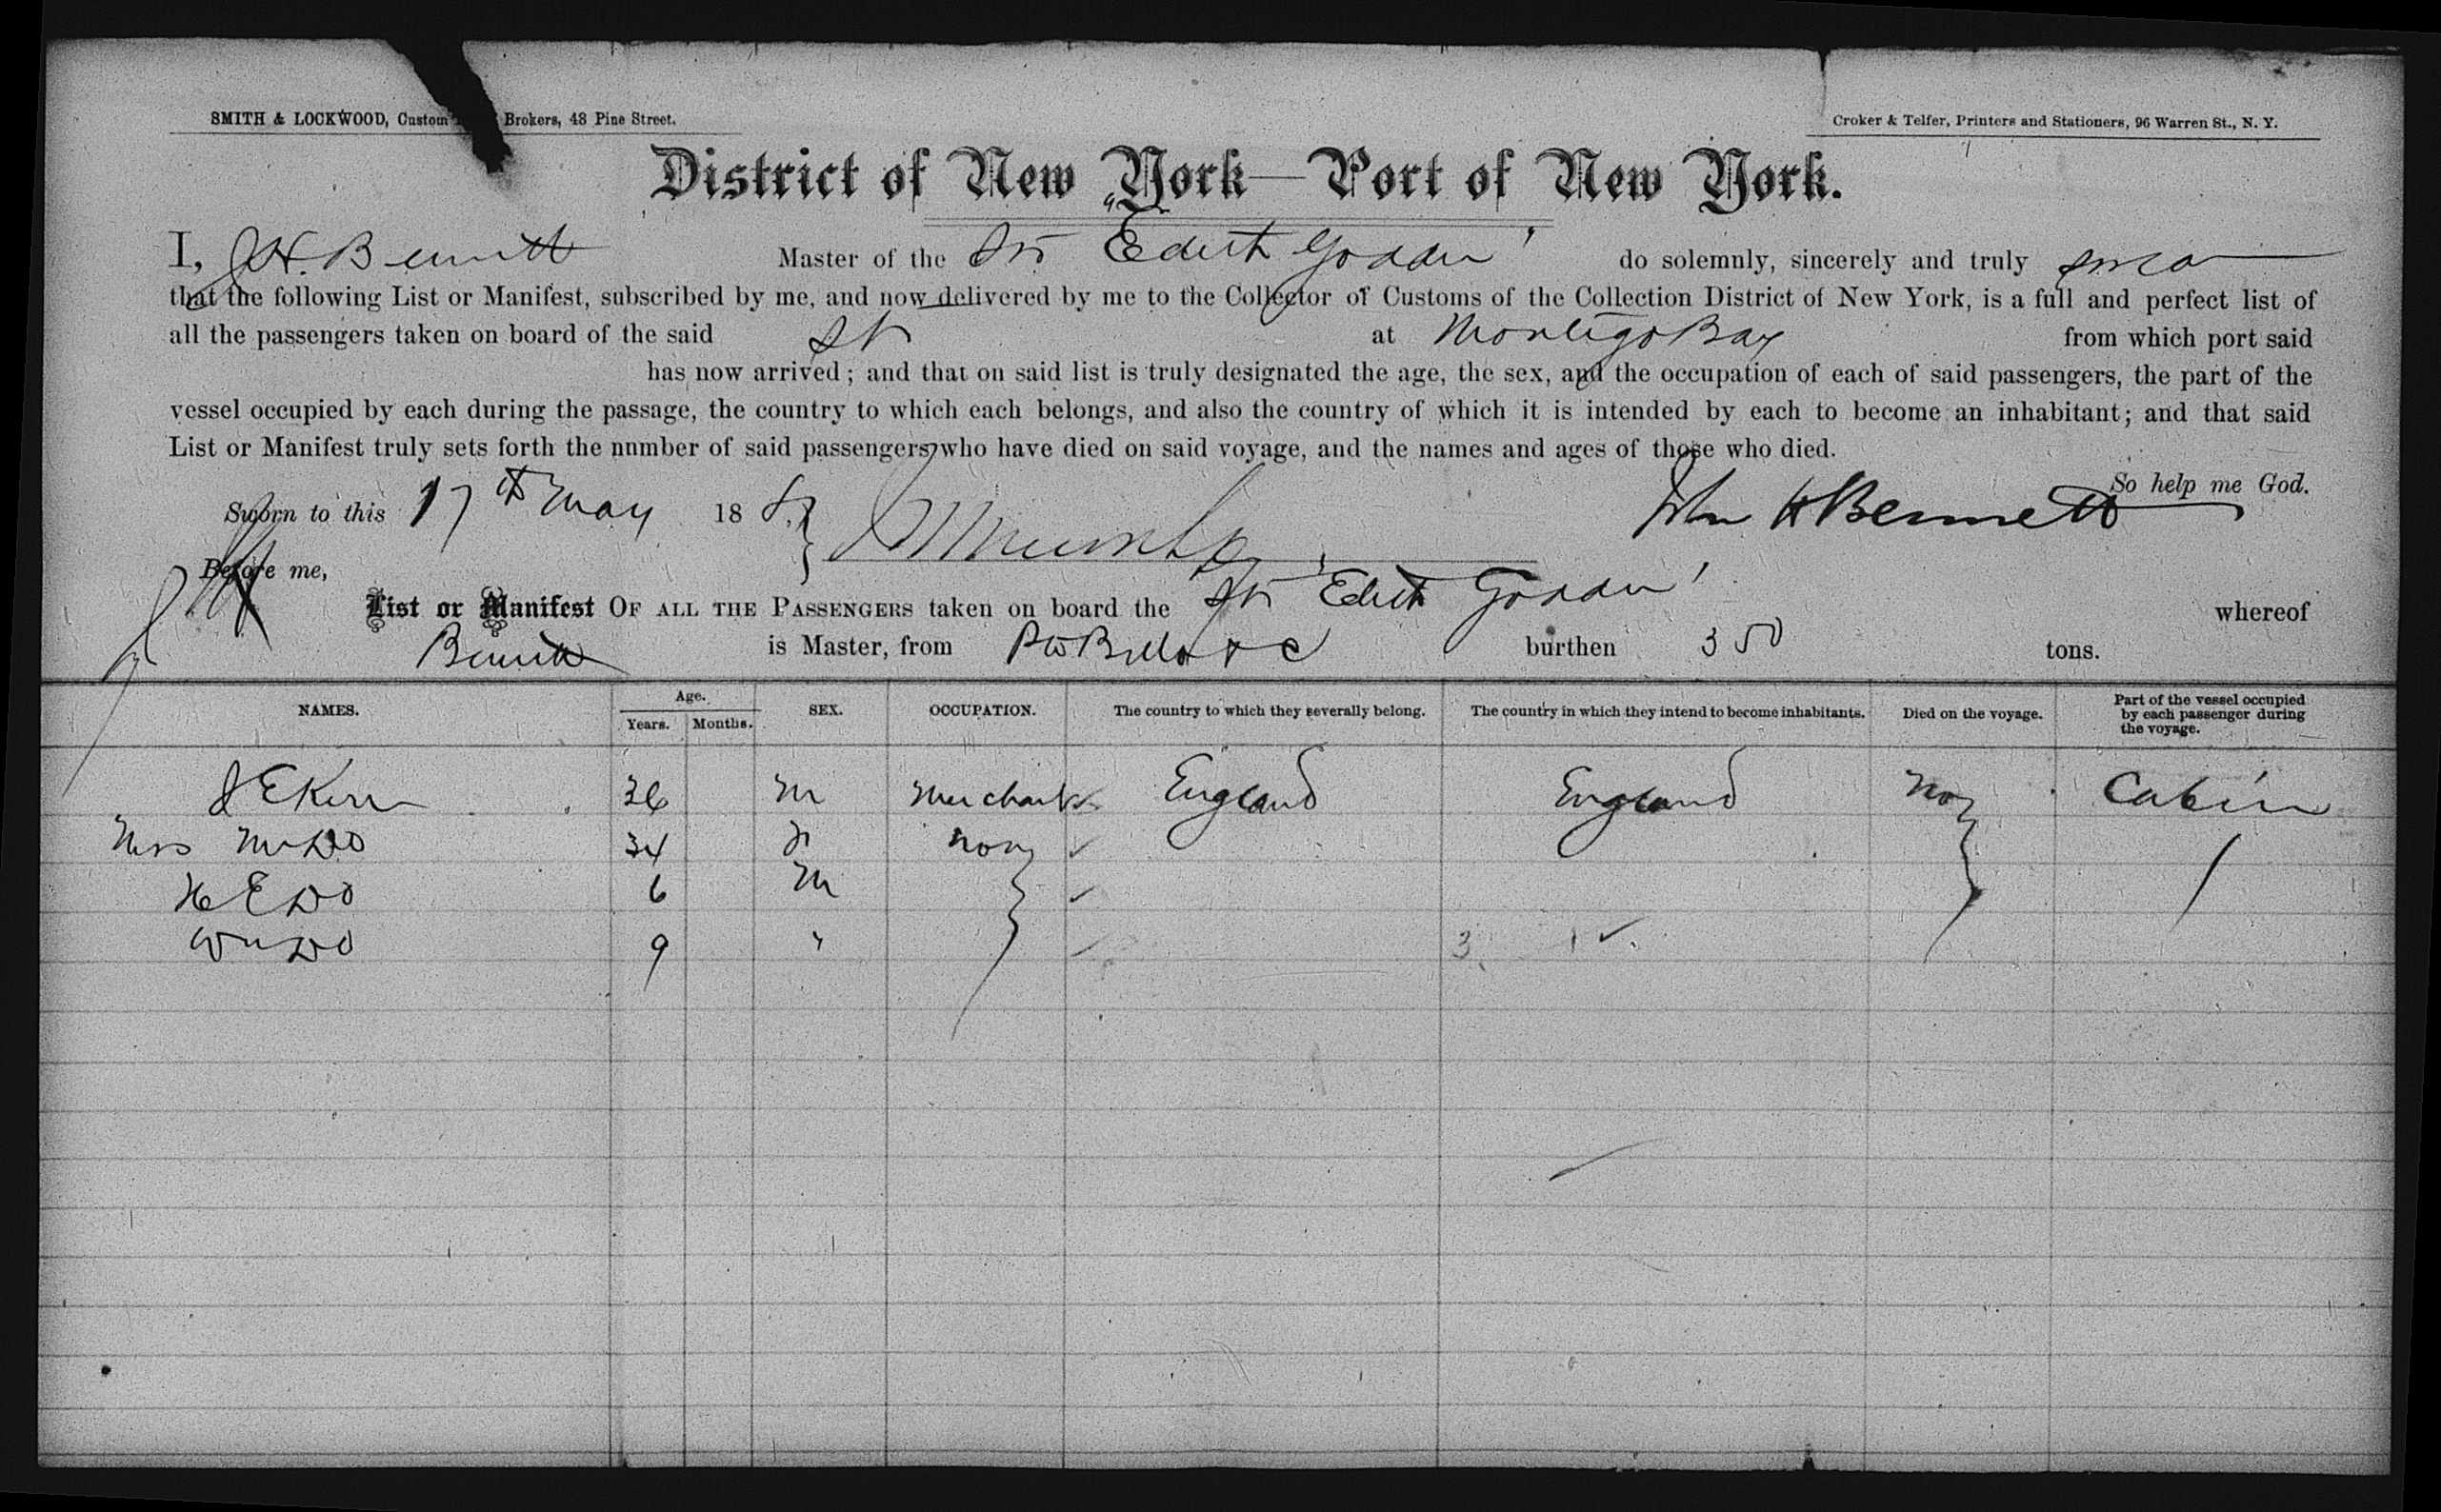 SMITH & LOCKWOOD, Custom Brokers, 48 Pine Street.
Croker & Telfer, Printers and Stationers, 96 Warren St., N. Y.
District of New York—Port of New York.
I, J.H. Bennett Master of the Str "Edith Godden" do solemnly, sincerely and truly swear
that the following List or Manifest, subscribed by me, and now delivered by me to the Collector of Customs of the Collection District of New York, is a full and perfect list of
all the passengers taken on board of the said Str at Montego Bay from which port said
has now arrived; and that on said list is truly designated the age, the sex, and the occupation of each of said passengers, the part of the
vessel occupied by each during the passage, the country to which each belongs, and also the country of which it is intended by each to become an inhabitant; and that said
List or Manifest truly sets forth the number of said passengers who have died on said voyage, and the names and ages of those who died.
So help me God.
Sworn to this 17th May 188 John H Bennett
Before me,
List or Manifest OF ALL THE PASSENGERS taken on board the Str Edith Godden' whereof
Bennett is Master, from burthen 350 tons.
NAMES. Age. Years. Months. SEX. OCCUPATION. The country to which they severally belong. The country in which they intend to become inhabitants. Died on the voyage. Part of the vessel occupied by each passenger during the voyage.
J E Kerr 36 M Merchant England England No Cabin
Mrs Do 34 F None
H E Do 6 M
Do 9 "
3 1